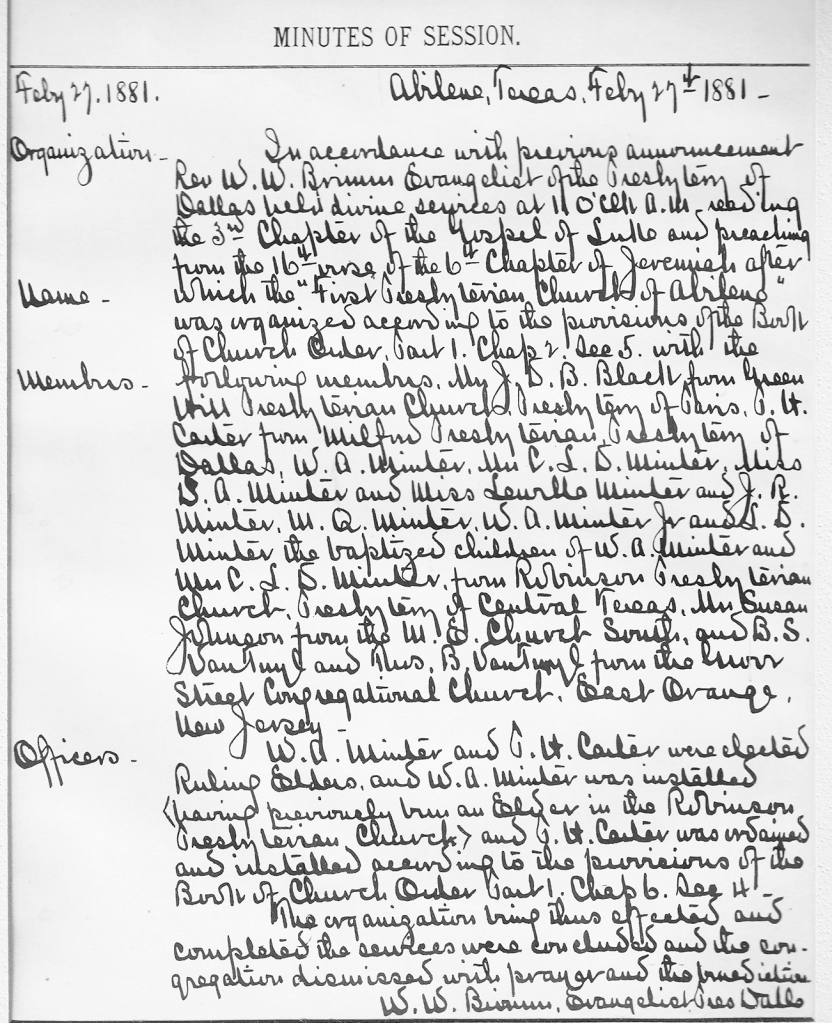 MINUTES OF SESSION.
Feby 27. 1881.
Abilene, Texas, Feby 27th 1881 -
Organization -
In accordance with previous announcement
Rev W. W. Brimm Evangelist of the Presbytery of
Dallas held divine services at 11 O'Clk A.M. reading
the 3rd Chapter of the Gospel of Luke and preaching
from the 16th verse of the 6th Chapter of Jeremiah after
Name -
which the "First Presbyterian Church of Abilene"
was organized according to the provisions of the Book
of Church Order, Part 1. Chap 2. Sec 5. with the
Members -
following members, J. D. B. Black from Green
Hill Presbyterian Church, Presbytery of Paris, T. H.
Carter from Milford Presbyterian, Presbytery of
Dallas, W. A. Minter, Mrs C. L. D. Minter, Miss
D. A. Minter and Miss Louella Minter and J. R.
Minter, M. Q. Minter, W. A. Minter Jr and D.
Minter the baptized children of W. A. Minter and
Mrs C. L. D. Minter, from Robinson Presbyterian
Church, Presbytery of Central Texas, Mrs Susan
Johnson from the M. E. Church South, and B. S.
VanTuyl and Thos. B. VanTuyl from the
Street Congregational Church, East Orange,
New Jersey -
Officers -
W. A. Minter and T. H. Carter were elected
Ruling Elders, and W. A. Minter was installed
(having previously been an Elder in the Robinson
Presbyterian Church) and T. H. Carter was ordained
and installed according to the provisions of the
Book of Church Order Part 1. Chap 6. Sec 4 -
The organization being thus effected and
completed the services were concluded and the con-
gregation dismissed with prayer and the benediction
W. W. Brimm, Evangelist Pres Dallas